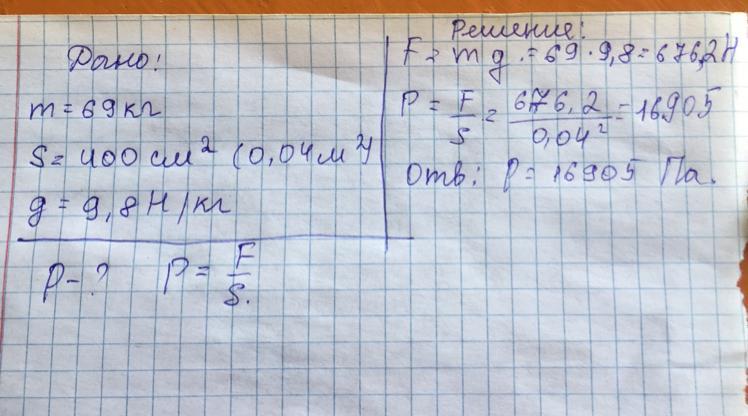 Дано:
m = 69 кг
S = 400 см² (0,04 м²)
g = 9,8 Н/кг
P - ? P = F/S.
Решение:
F = m g. = 69 · 9,8 = 676,2 Н
P = F/S = 676,2/0,04² = 16905
Отв: P = 16905 Па.